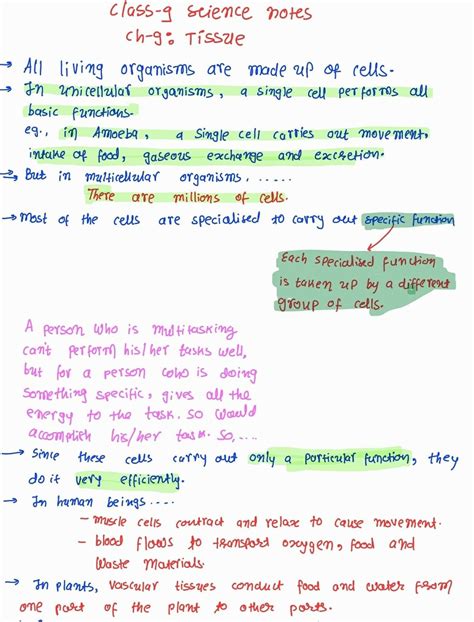 Class-9 science notes
Ch-9: Tissue
→ All living organisms are made up of cells.
→ In Unicellular organisms, a single cell performs all
basic functions.
eg., in Amoeba, a single cell carries out movement,
intake of food, gaseous exchange and excretion.
→ But in multicellular organisms......
There are millions of cells.
→ Most of the cells are specialised to carry out specific function
Each specialised function
is taken up by a different
group of cells.
A person who is multitasking
can't perform his/her tasks well,
but for a person who is doing
something specific, gives all the
energy to the task. So would
accomplish his/her task. So,....
→ Since these cells carry out only a particular function, they
do it very efficiently.
→ In human beings.....
- muscle cells contract and relax to cause movement.
- blood flows to transport oxygen, food and
waste materials.
→ In plants, vascular tissues conduct food and water from
one part of the plant to other parts.